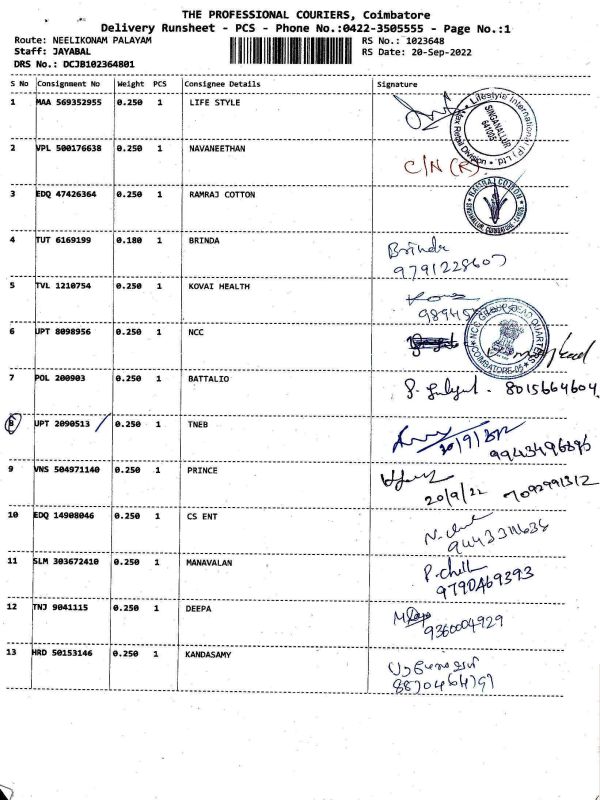 THE PROFESSIONAL COURIERS, Coimbatore
Delivery Runsheet - PCS - Phone No.:0422-3505555 - Page No.:1
Route: NEELIKONAM PALAYAM RS No.: 1023648
Staff: JAYABAL RS Date: 20-Sep-2022
DRS No.: DCJB102364801
S No Consignment No Weight PCS Consignee Details Signature
1 MAA 569352955 0.250 1 LIFE STYLE
Lifestyle International (P) Ltd. Max Retail Division
SINGANALLUR
641005
2 VPL 500176638 0.250 1 NAVANEETHAN
C/N (R)
3 EDQ 47426364 0.250 1 RAMRAJ COTTON
RAMRAJ COTTON
4 TUT 6169199 0.180 1 BRINDA
Brinda
9791228607
5 TVL 1210754 0.250 1 KOVAI HEALTH
6 UPT 8098956 0.250 1 NCC
NCC HEAD QUARTERS
COIMBATORE-05
7 POL 200903 0.250 1 BATTALIO
8015664604
8 UPT 2090513 0.250 1 TNEB
20/9/2022
9943496896
9 VNS 504971140 0.250 1 PRINCE
20/9/22 7092991312
10 EDQ 14908046 0.250 1 CS ENT
11 SLM 303672410 0.250 1 MANAVALAN
P. Chell
9790469393
12 TNJ 9041115 0.250 1 DEEPA
9360004929
13 HRD 50153146 0.250 1 KANDASAMY
8870464791